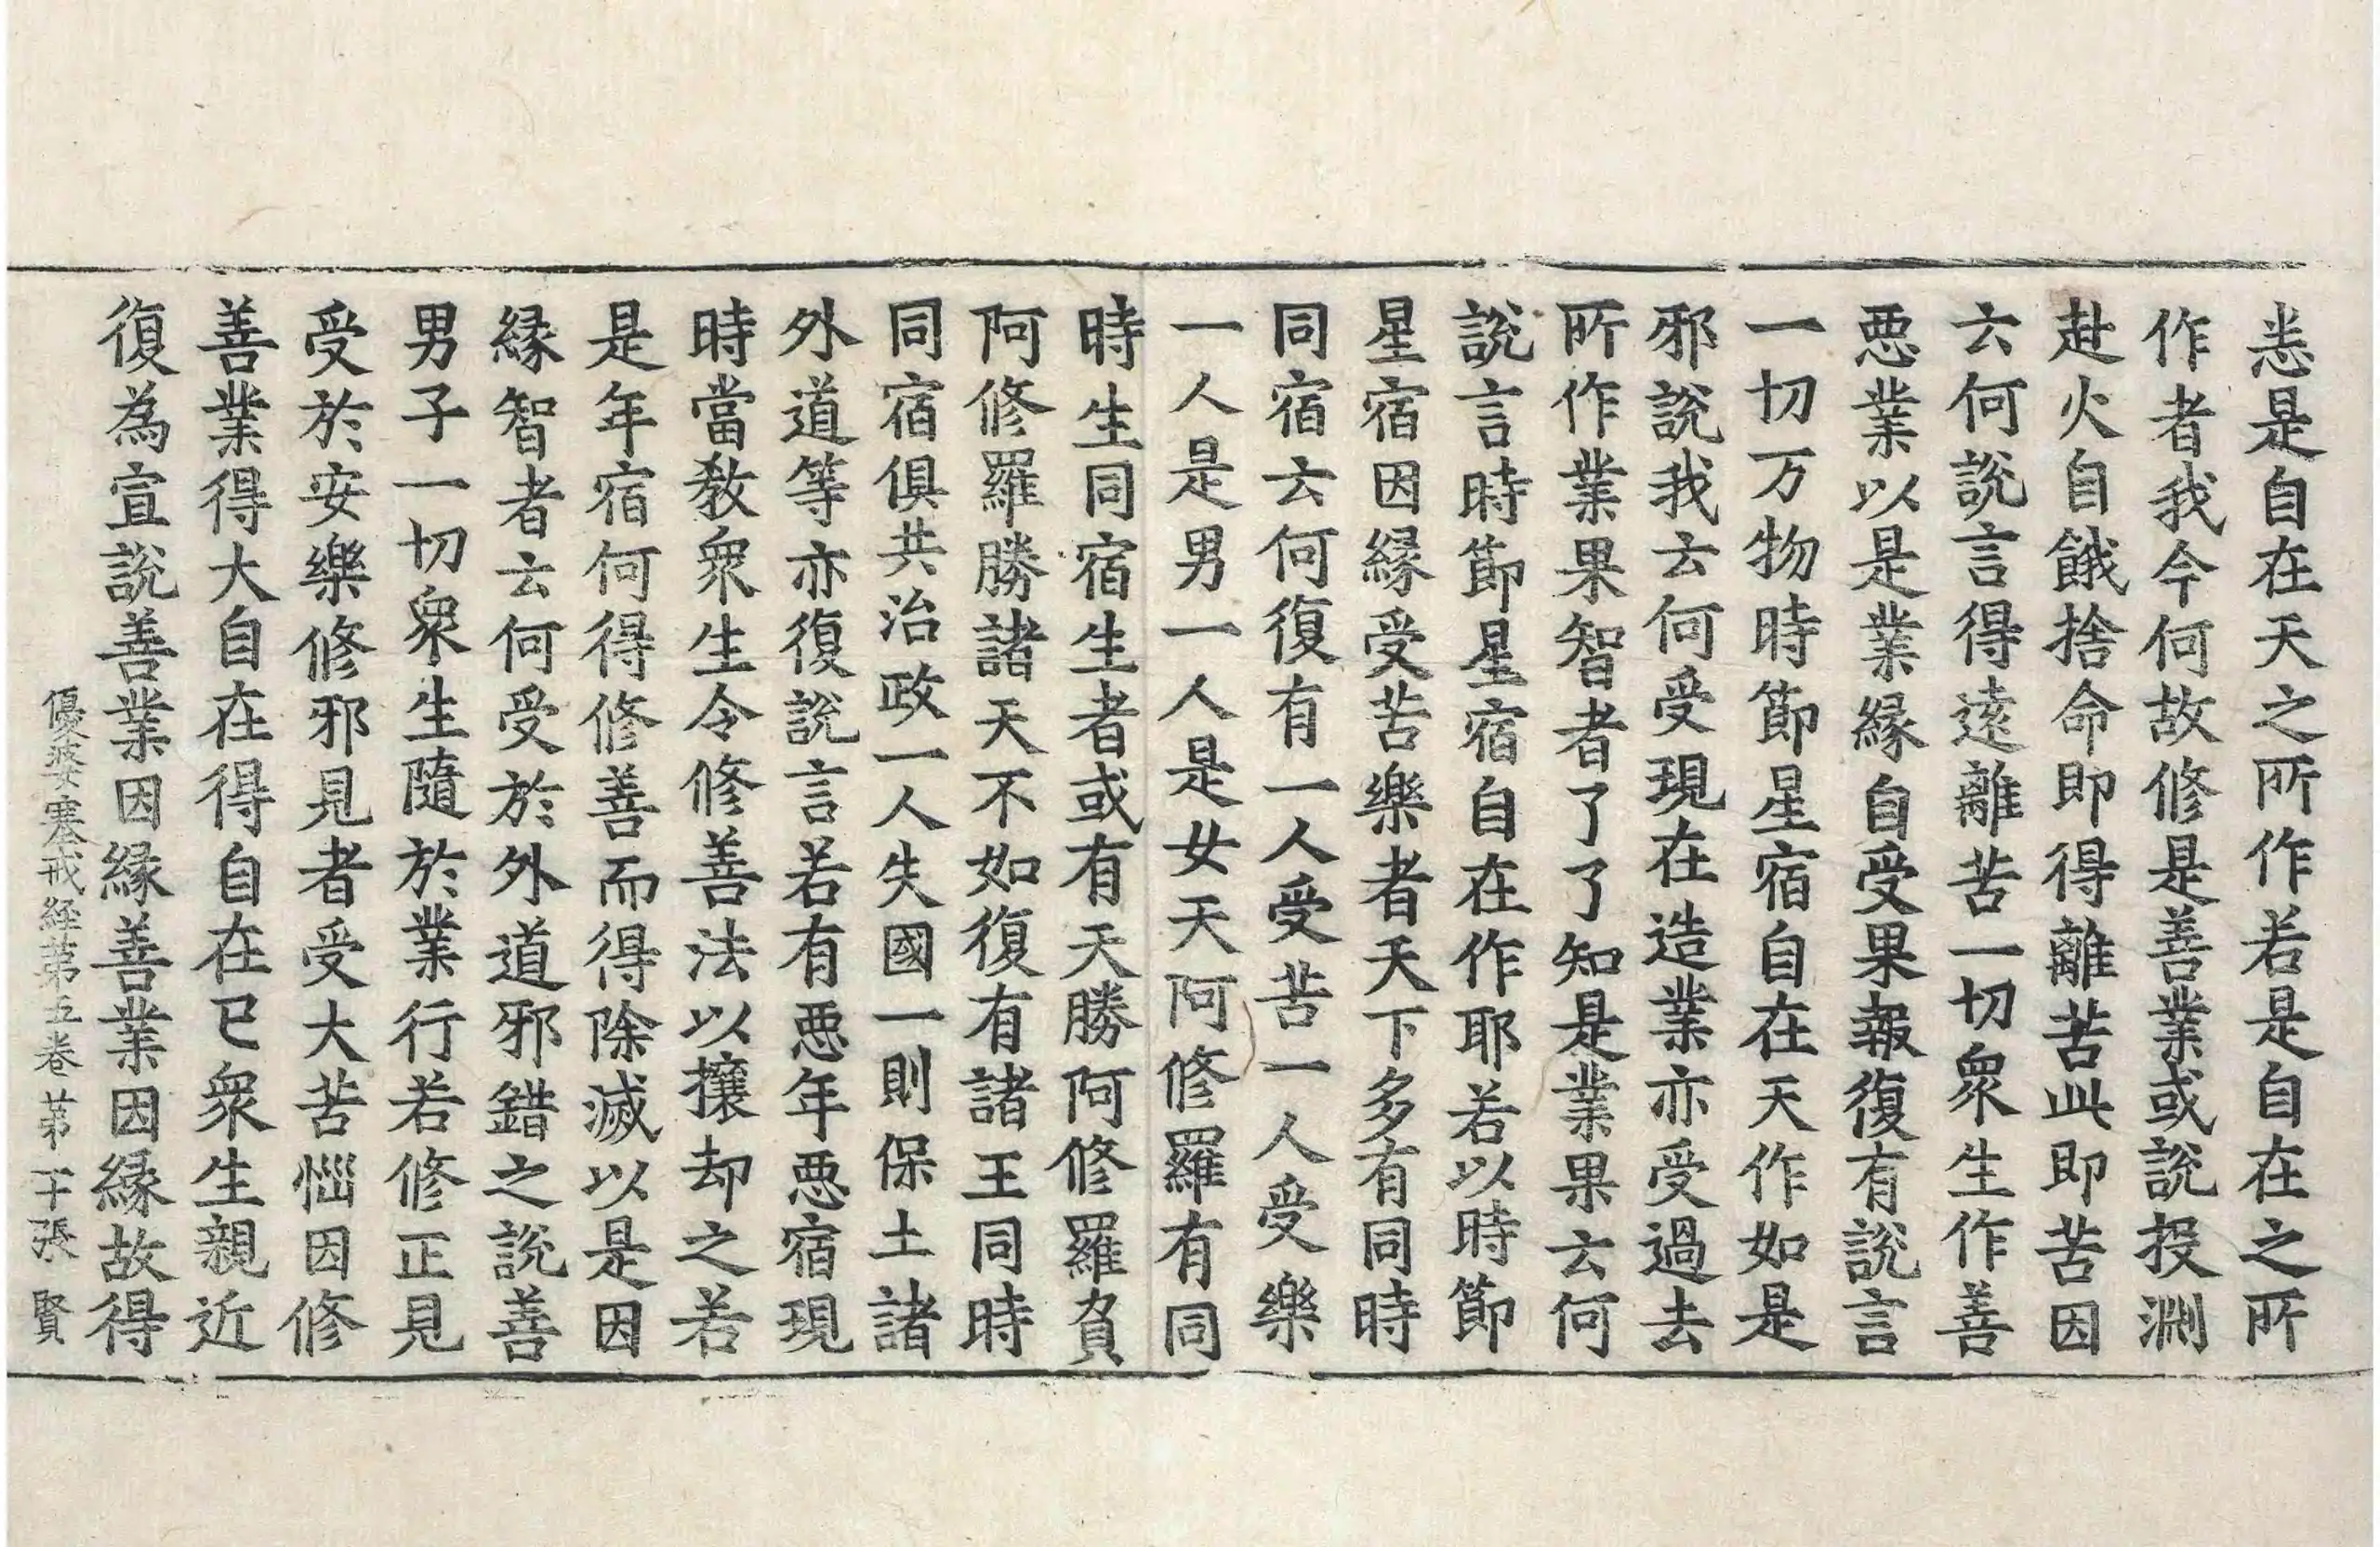 恙是自在天之所作若是自在之所
作者我今何故修是善業或說投渊
赴火自餓捨命即得離苦此即苦因
云何說言得遠離苦一切衆生作善
悪業以是業縁自受果報復有說言
一切万物時節星宿自在天作如是
邪說我云何受現在造業亦受過去
所作業果智者了了知是業果云何
說言時節星宿自在作耶若以時節
星宿因縁受苦樂者天下多有同時
同宿云何復有一人受苦一人受樂
一人是男一人是女天阿修羅有同
時生同宿生者或有天勝阿修羅負
阿修羅勝諸天不如復有諸王同時
同宿俱共治政一人失國一則保土諸
外道等亦復說言若有悪年悪宿現
時當敎衆生令修善法以攘却之若
是年宿何得修善而得除滅以是因
縁智者云何受於外道邪錯之說善
男子一切衆生隨於業行若修正見
受於安樂修邪見者受大苦惱因修
善業得大自在得自在已衆生親近
復為宣說善業因縁善業因縁故得
優婆塞戒経第五卷 第十張 賢